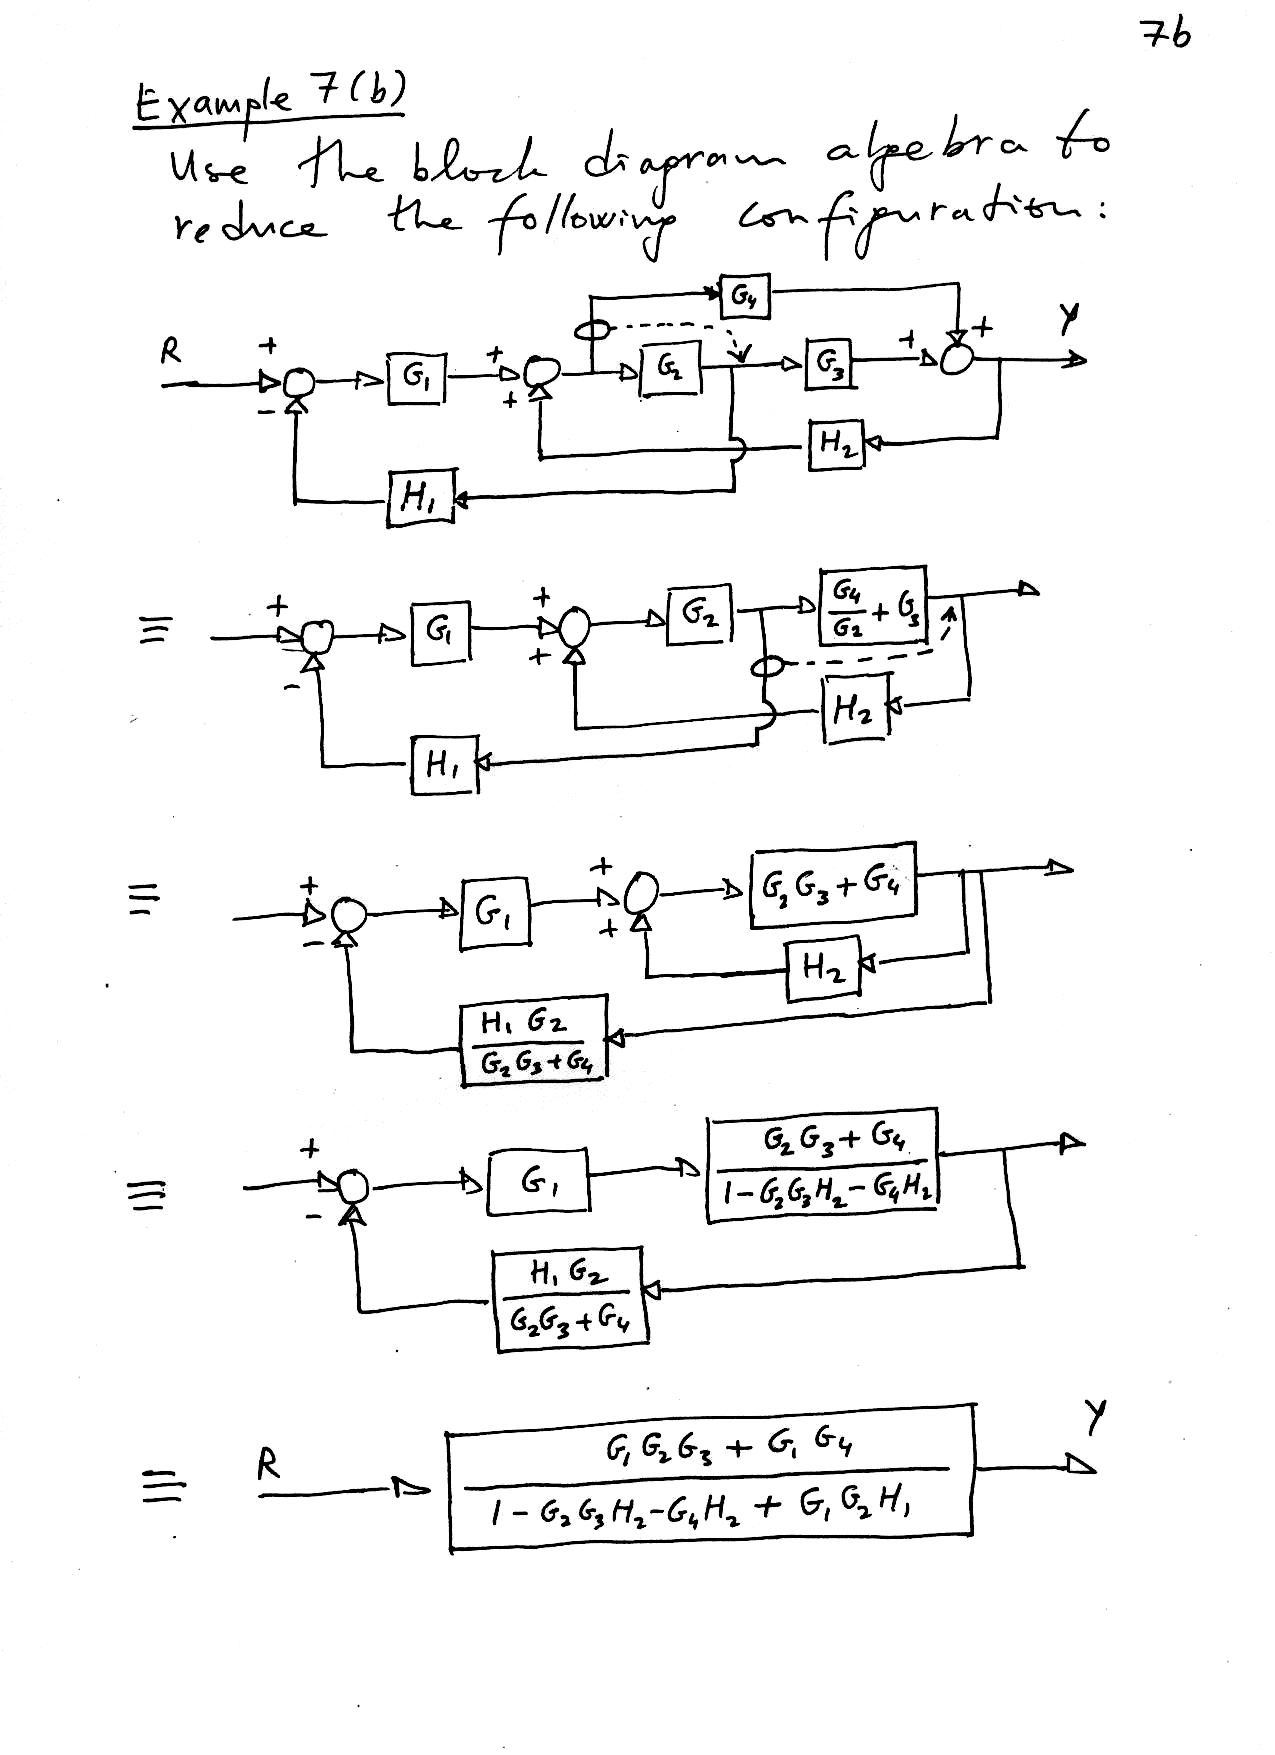 7b
Example 7(b)
Use the block diagram algebra to
reduce the following configuration:
G₄
R + G₁ + + G₂ G₃ + + Y
- H₂
H₁
≡ + G₁ + + G₂ G₄/G₂ + G₃
- H₂
H₁
= + G₁ + + G₂G₃ + G₄
- H₂
H₁ G₂
G₂G₃ + G₄
≡ + G₁ G₂G₃ + G₄
1 - G₂G₃H₂ - G₄H₂
- H₁ G₂
G₂G₃ + G₄
≡ R G₁G₂G₃ + G₁G₄ Y
1 - G₂G₃H₂ - G₄H₂ + G₁G₂H₁